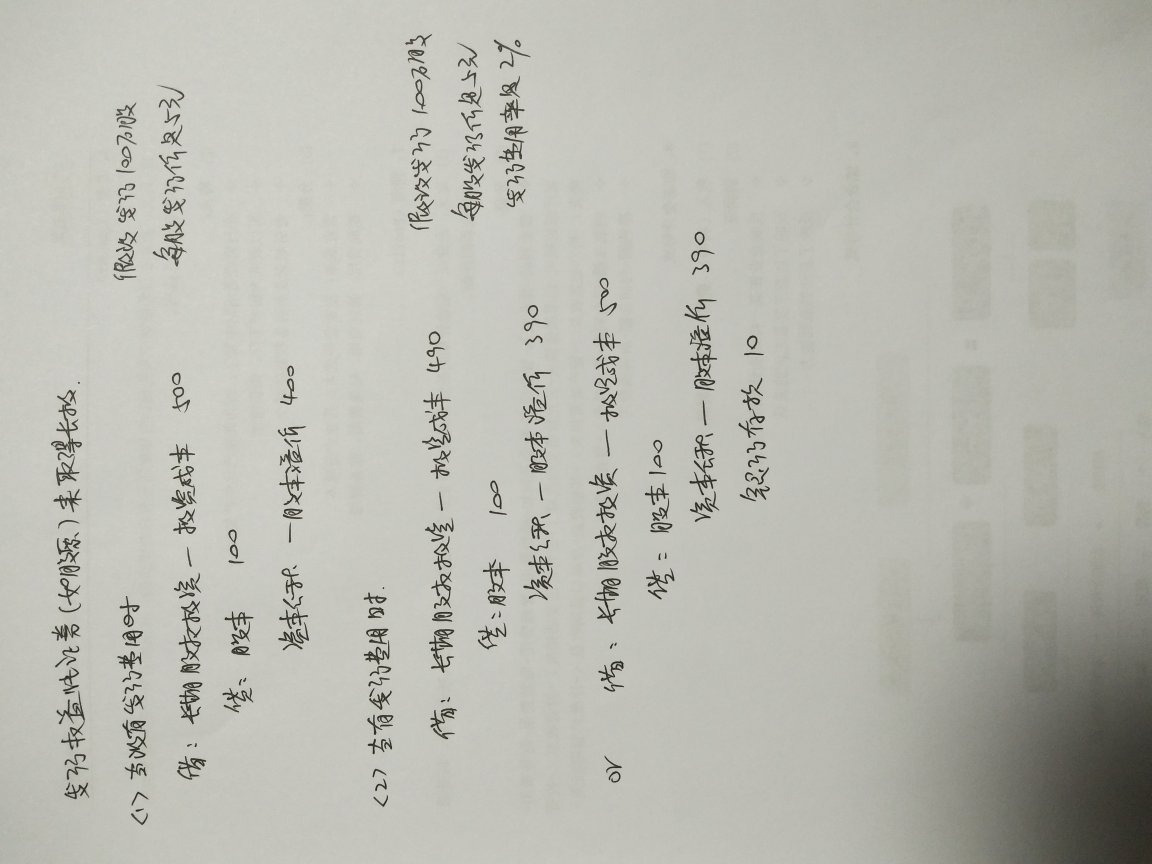 发行权益性证券(如股票)来取得长投.
<1> 当没有发行费用时
假设发行100万股
每股发行价是5元
借：长期股权投资—投资成本 500
贷：股本 100
资本公积—股本溢价 400
<2> 当有发行费用时.
假设发行100万股
每股发行价是5元
发行费用率是2%
借：长期股权投资—投资成本 490
贷：股本 100
资本公积—股本溢价 390
or 借：长期股权投资—投资成本 500
贷：股本100
资本公积—股本溢价 390
银行存款 10